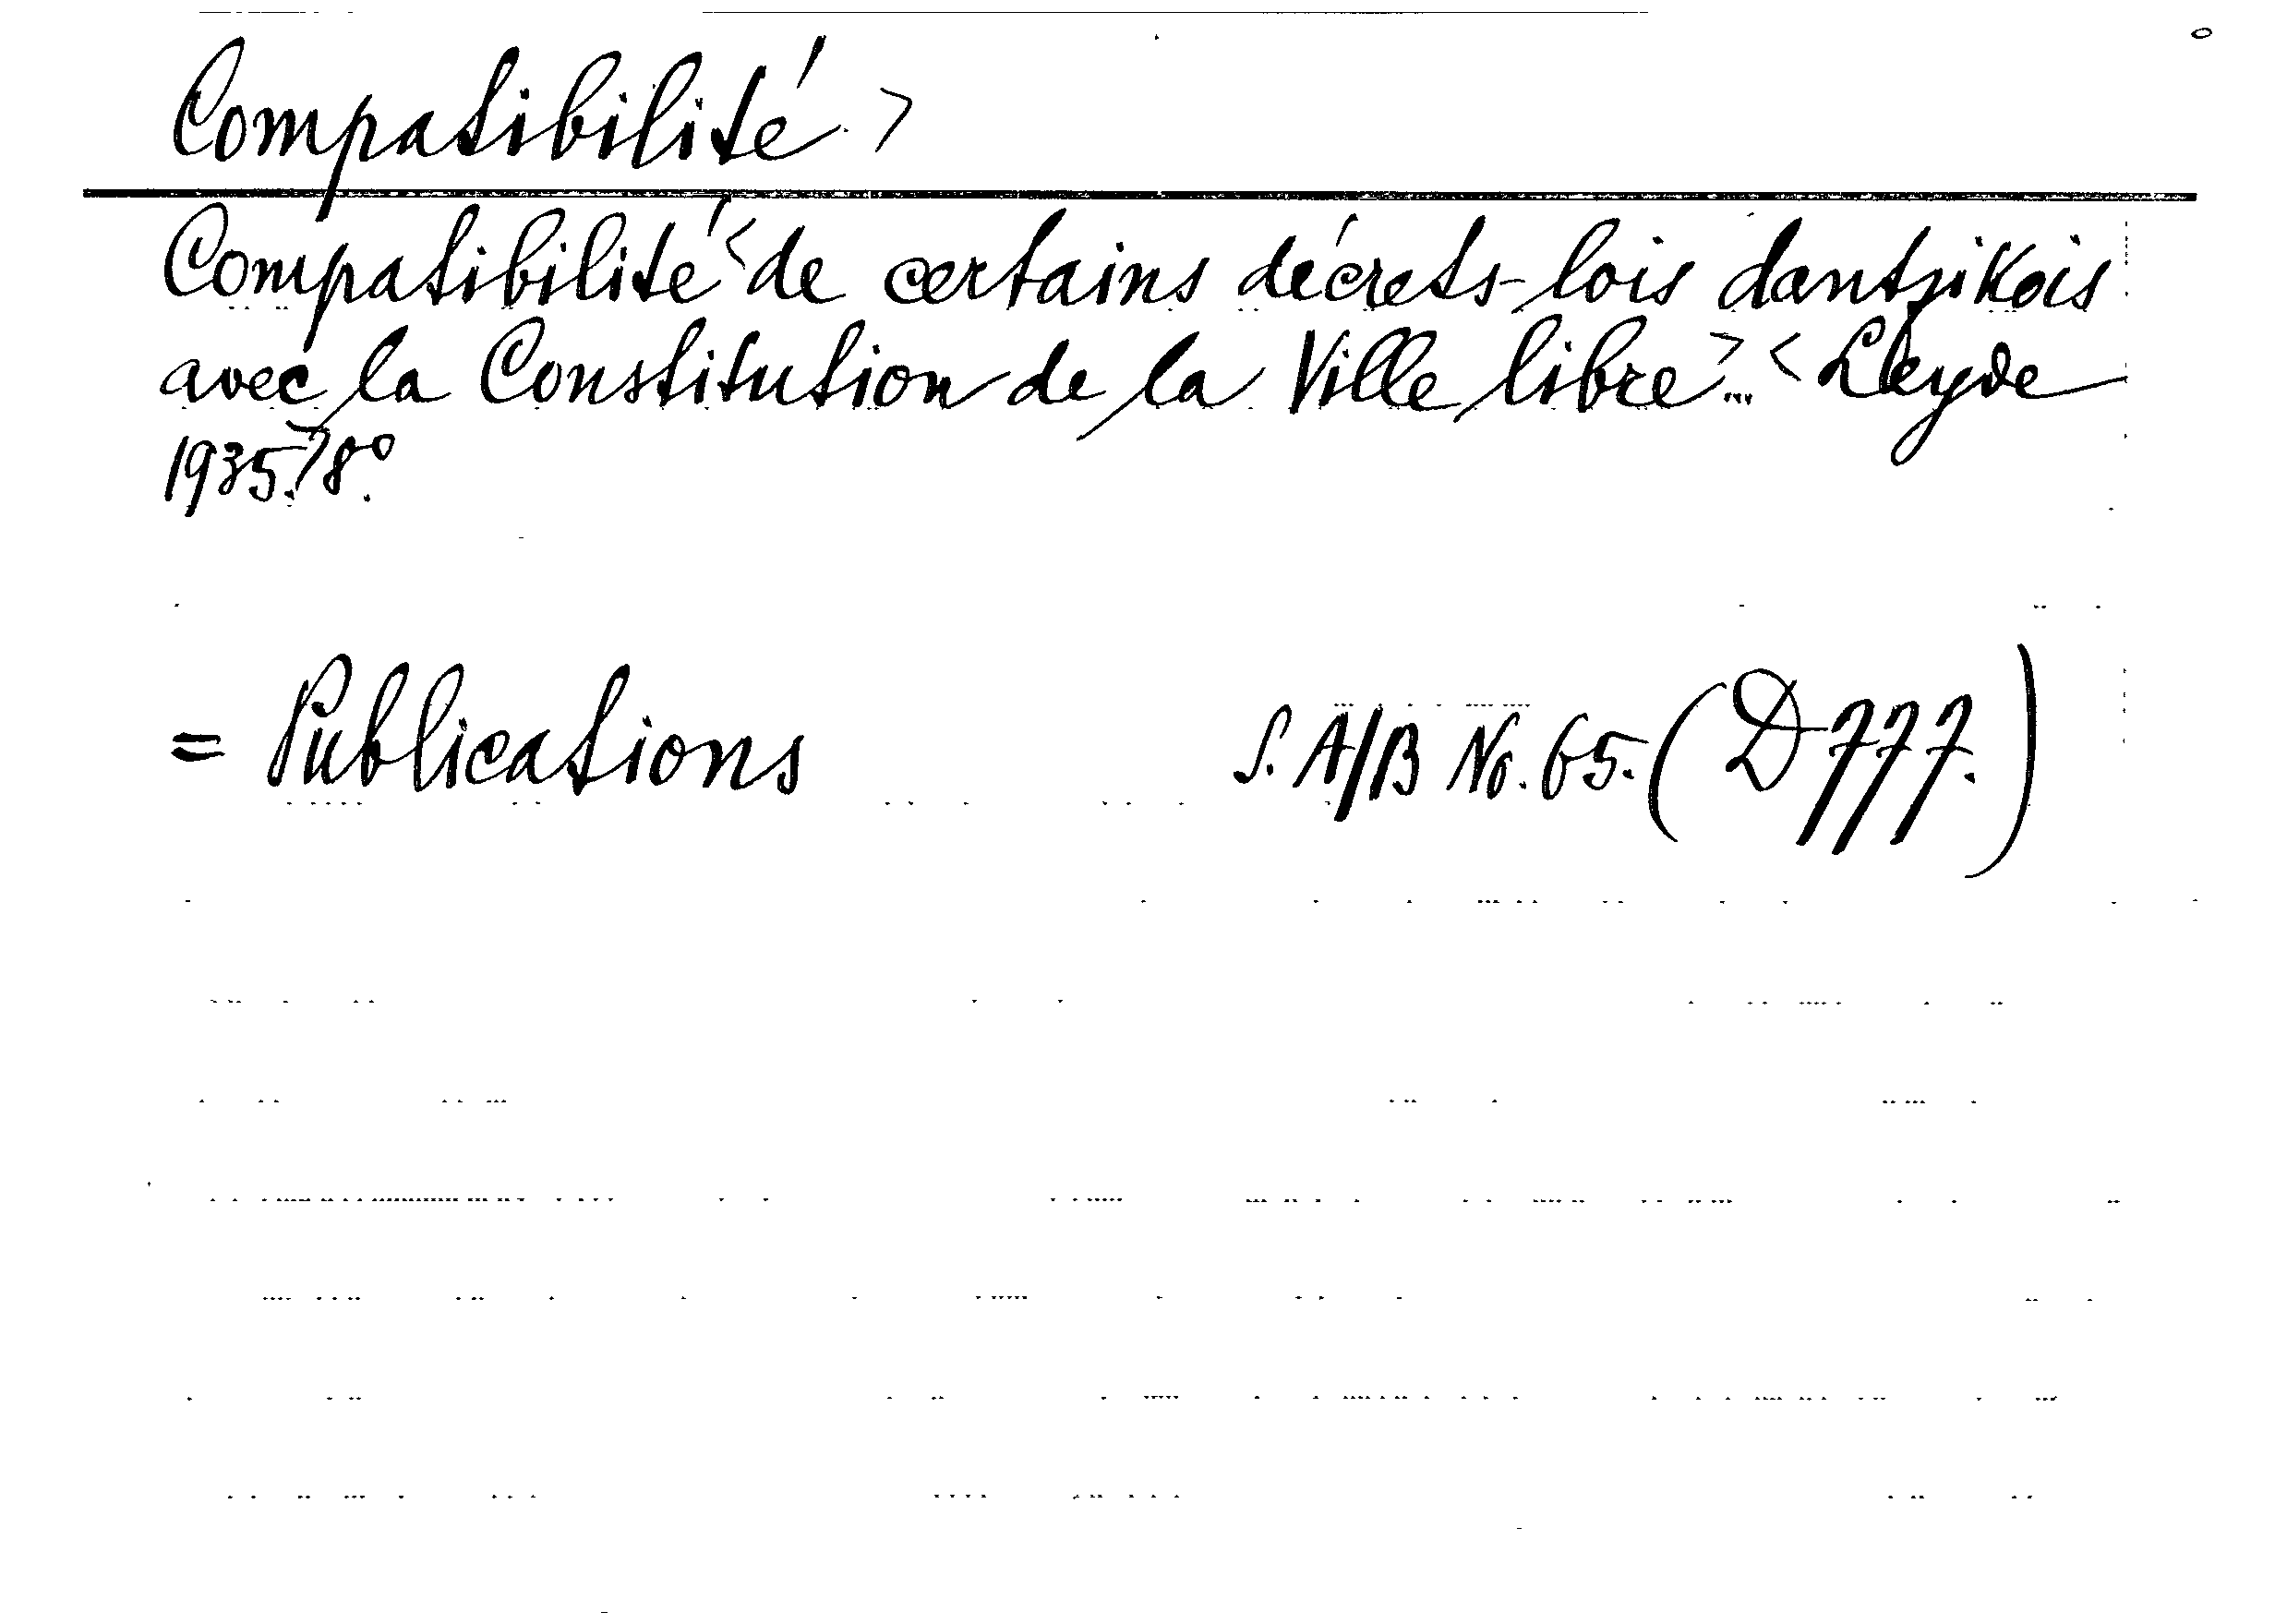 Compatibilité >
Compatibilité < de certains décrets-lois dantzikois
avec la Constitution de la Ville libre > ... < Leyde
1935. > 8°.
= Publications S. A/B No. 65. (D 777.)